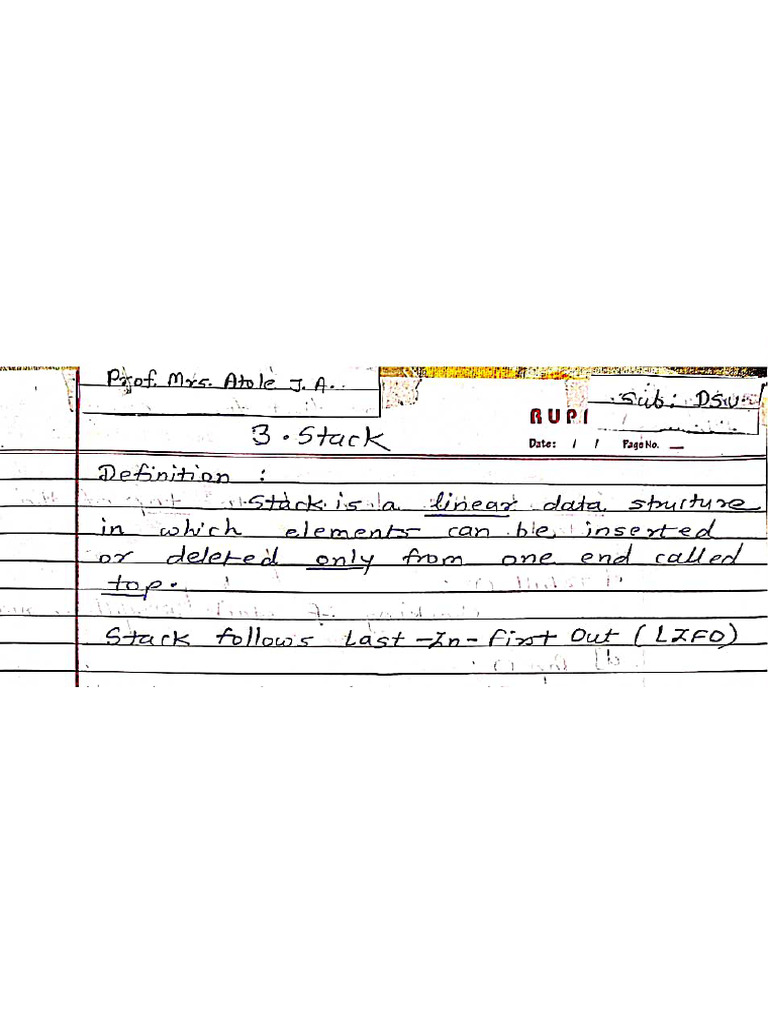 Prof. Mrs. Atole J. A.
Sub: DSU
RUPI
3. Stack
Date: / / Page No.
Definition :
Stack is a linear data structure
in which elements can be inserted
or deleted only from one end called
top.
Stack follows Last-In-First Out (LIFO)